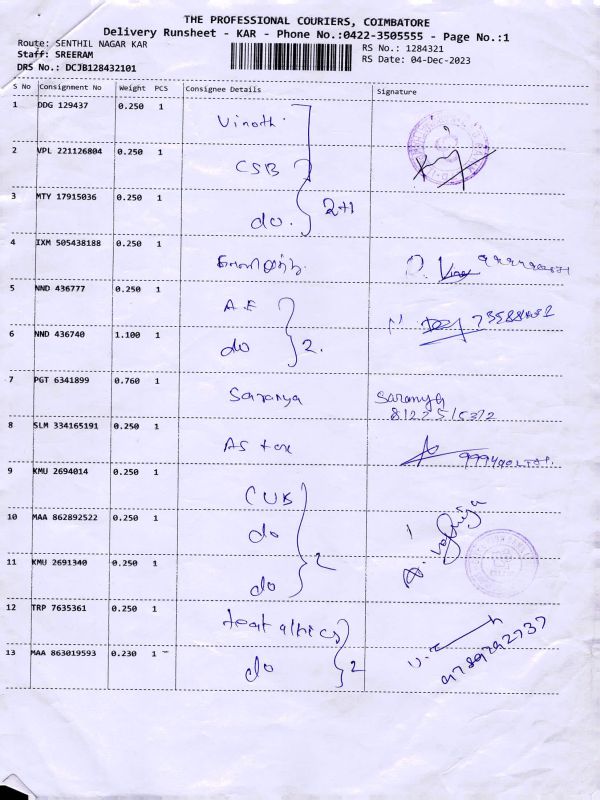 THE PROFESSIONAL COURIERS, COIMBATORE
Delivery Runsheet - KAR - Phone No.:0422-3505555 - Page No.:1
Route: SENTHIL NAGAR KAR
RS No.: 1284321
Staff: SREERAM
RS Date: 04-Dec-2023
DRS No.: DCJB128432101
S No Consignment No Weight PCS Consignee Details Signature
1 DDG 129437 0.250 1 Vinoth.
2 VPL 221126804 0.250 1 CSB
3 MTY 17915036 0.250 1 do. 2+1
4 IXM 505438188 0.250 1
5 NND 436777 0.250 1 A.E
6 NND 436740 1.100 1 do 2.
7 PGT 6341899 0.760 1 Saranya Saranya
8 SLM 334165191 0.250 1 AS tex
9 KMU 2694014 0.250 1 CUB
10 MAA 862892522 0.250 1 do
11 KMU 2691340 0.250 1 do 2
12 TRP 7635361 0.250 1
13 MAA 863019593 0.230 1 do 2
9789292737